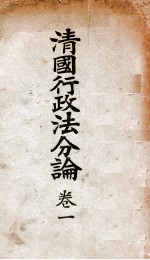 清國行政法分論
卷一